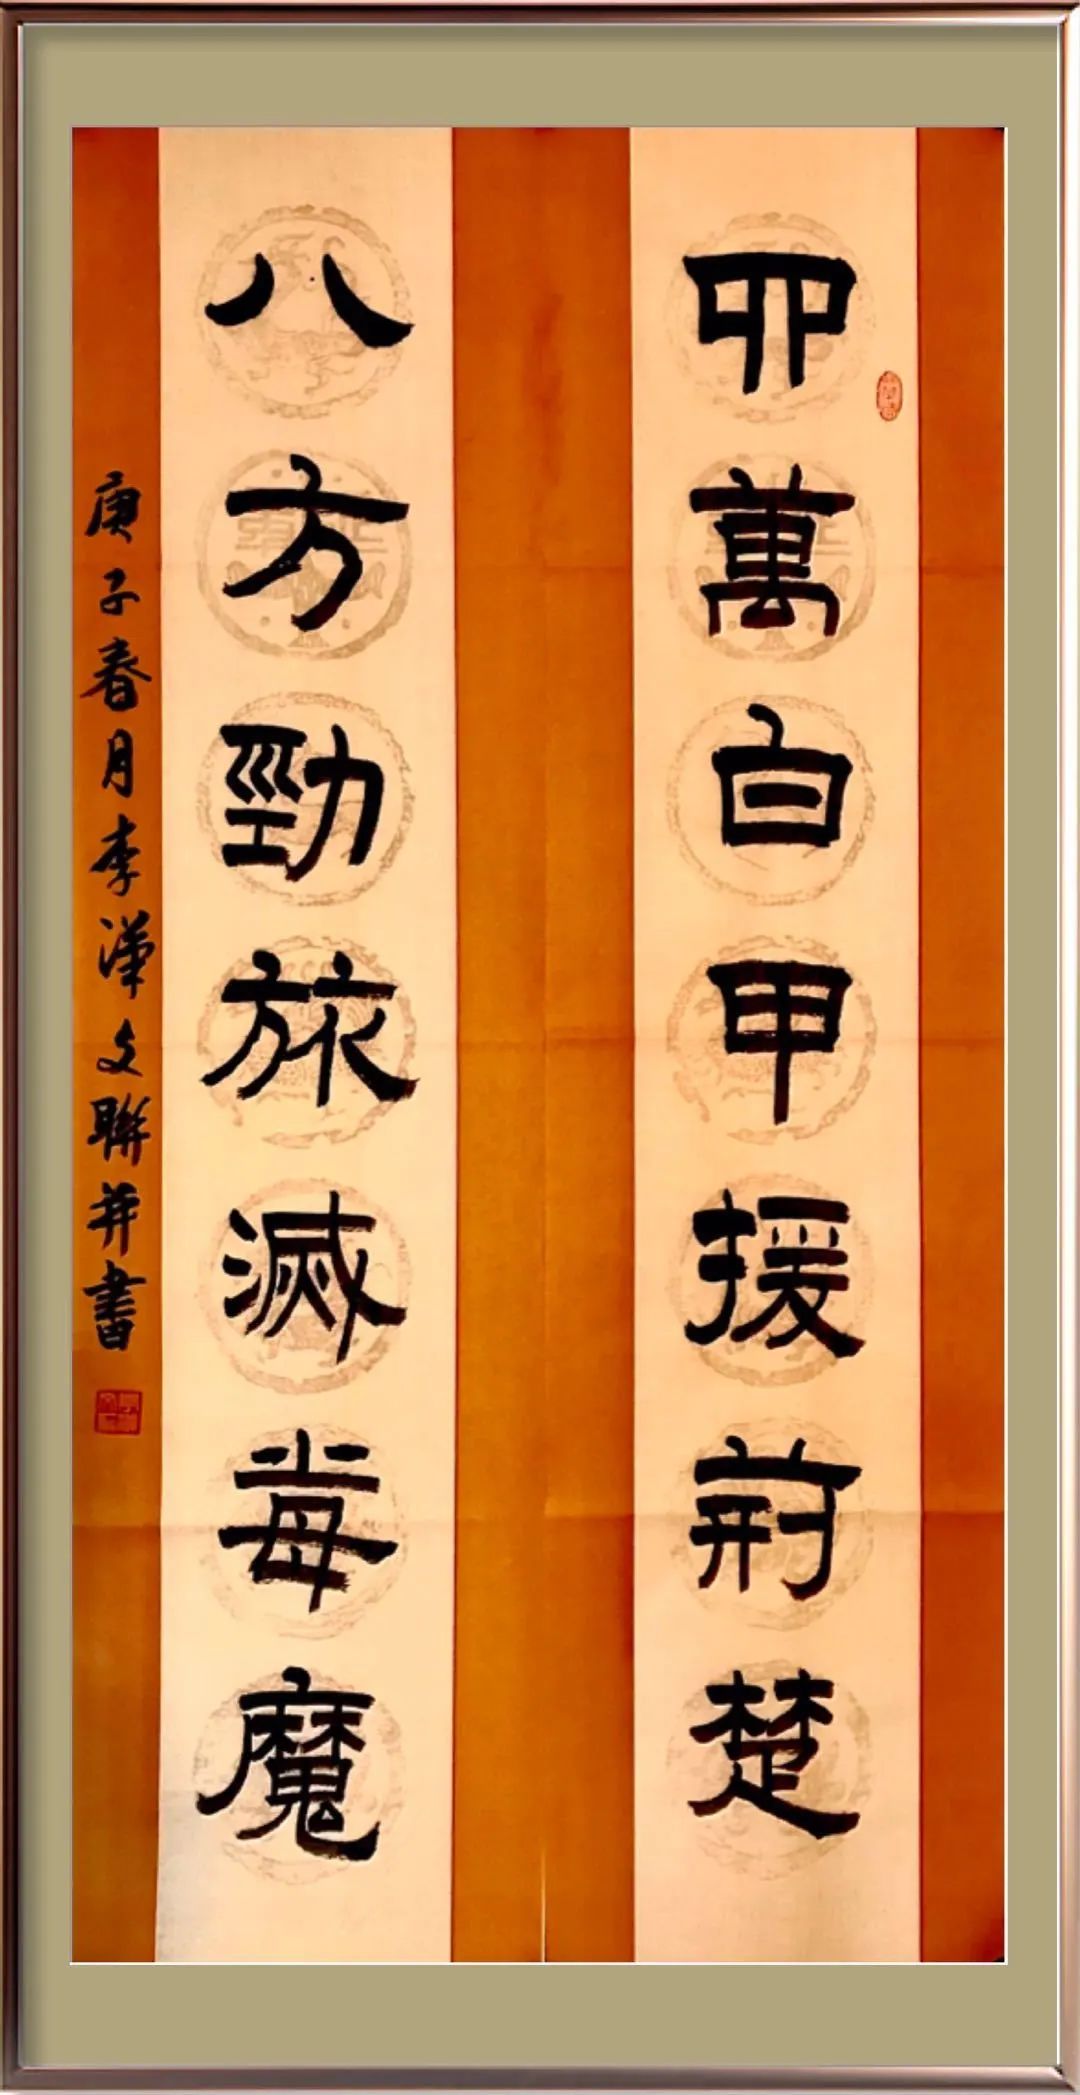 四萬白甲援荊楚
八方勁旅滅毒魔
庚子春月李文聯并書